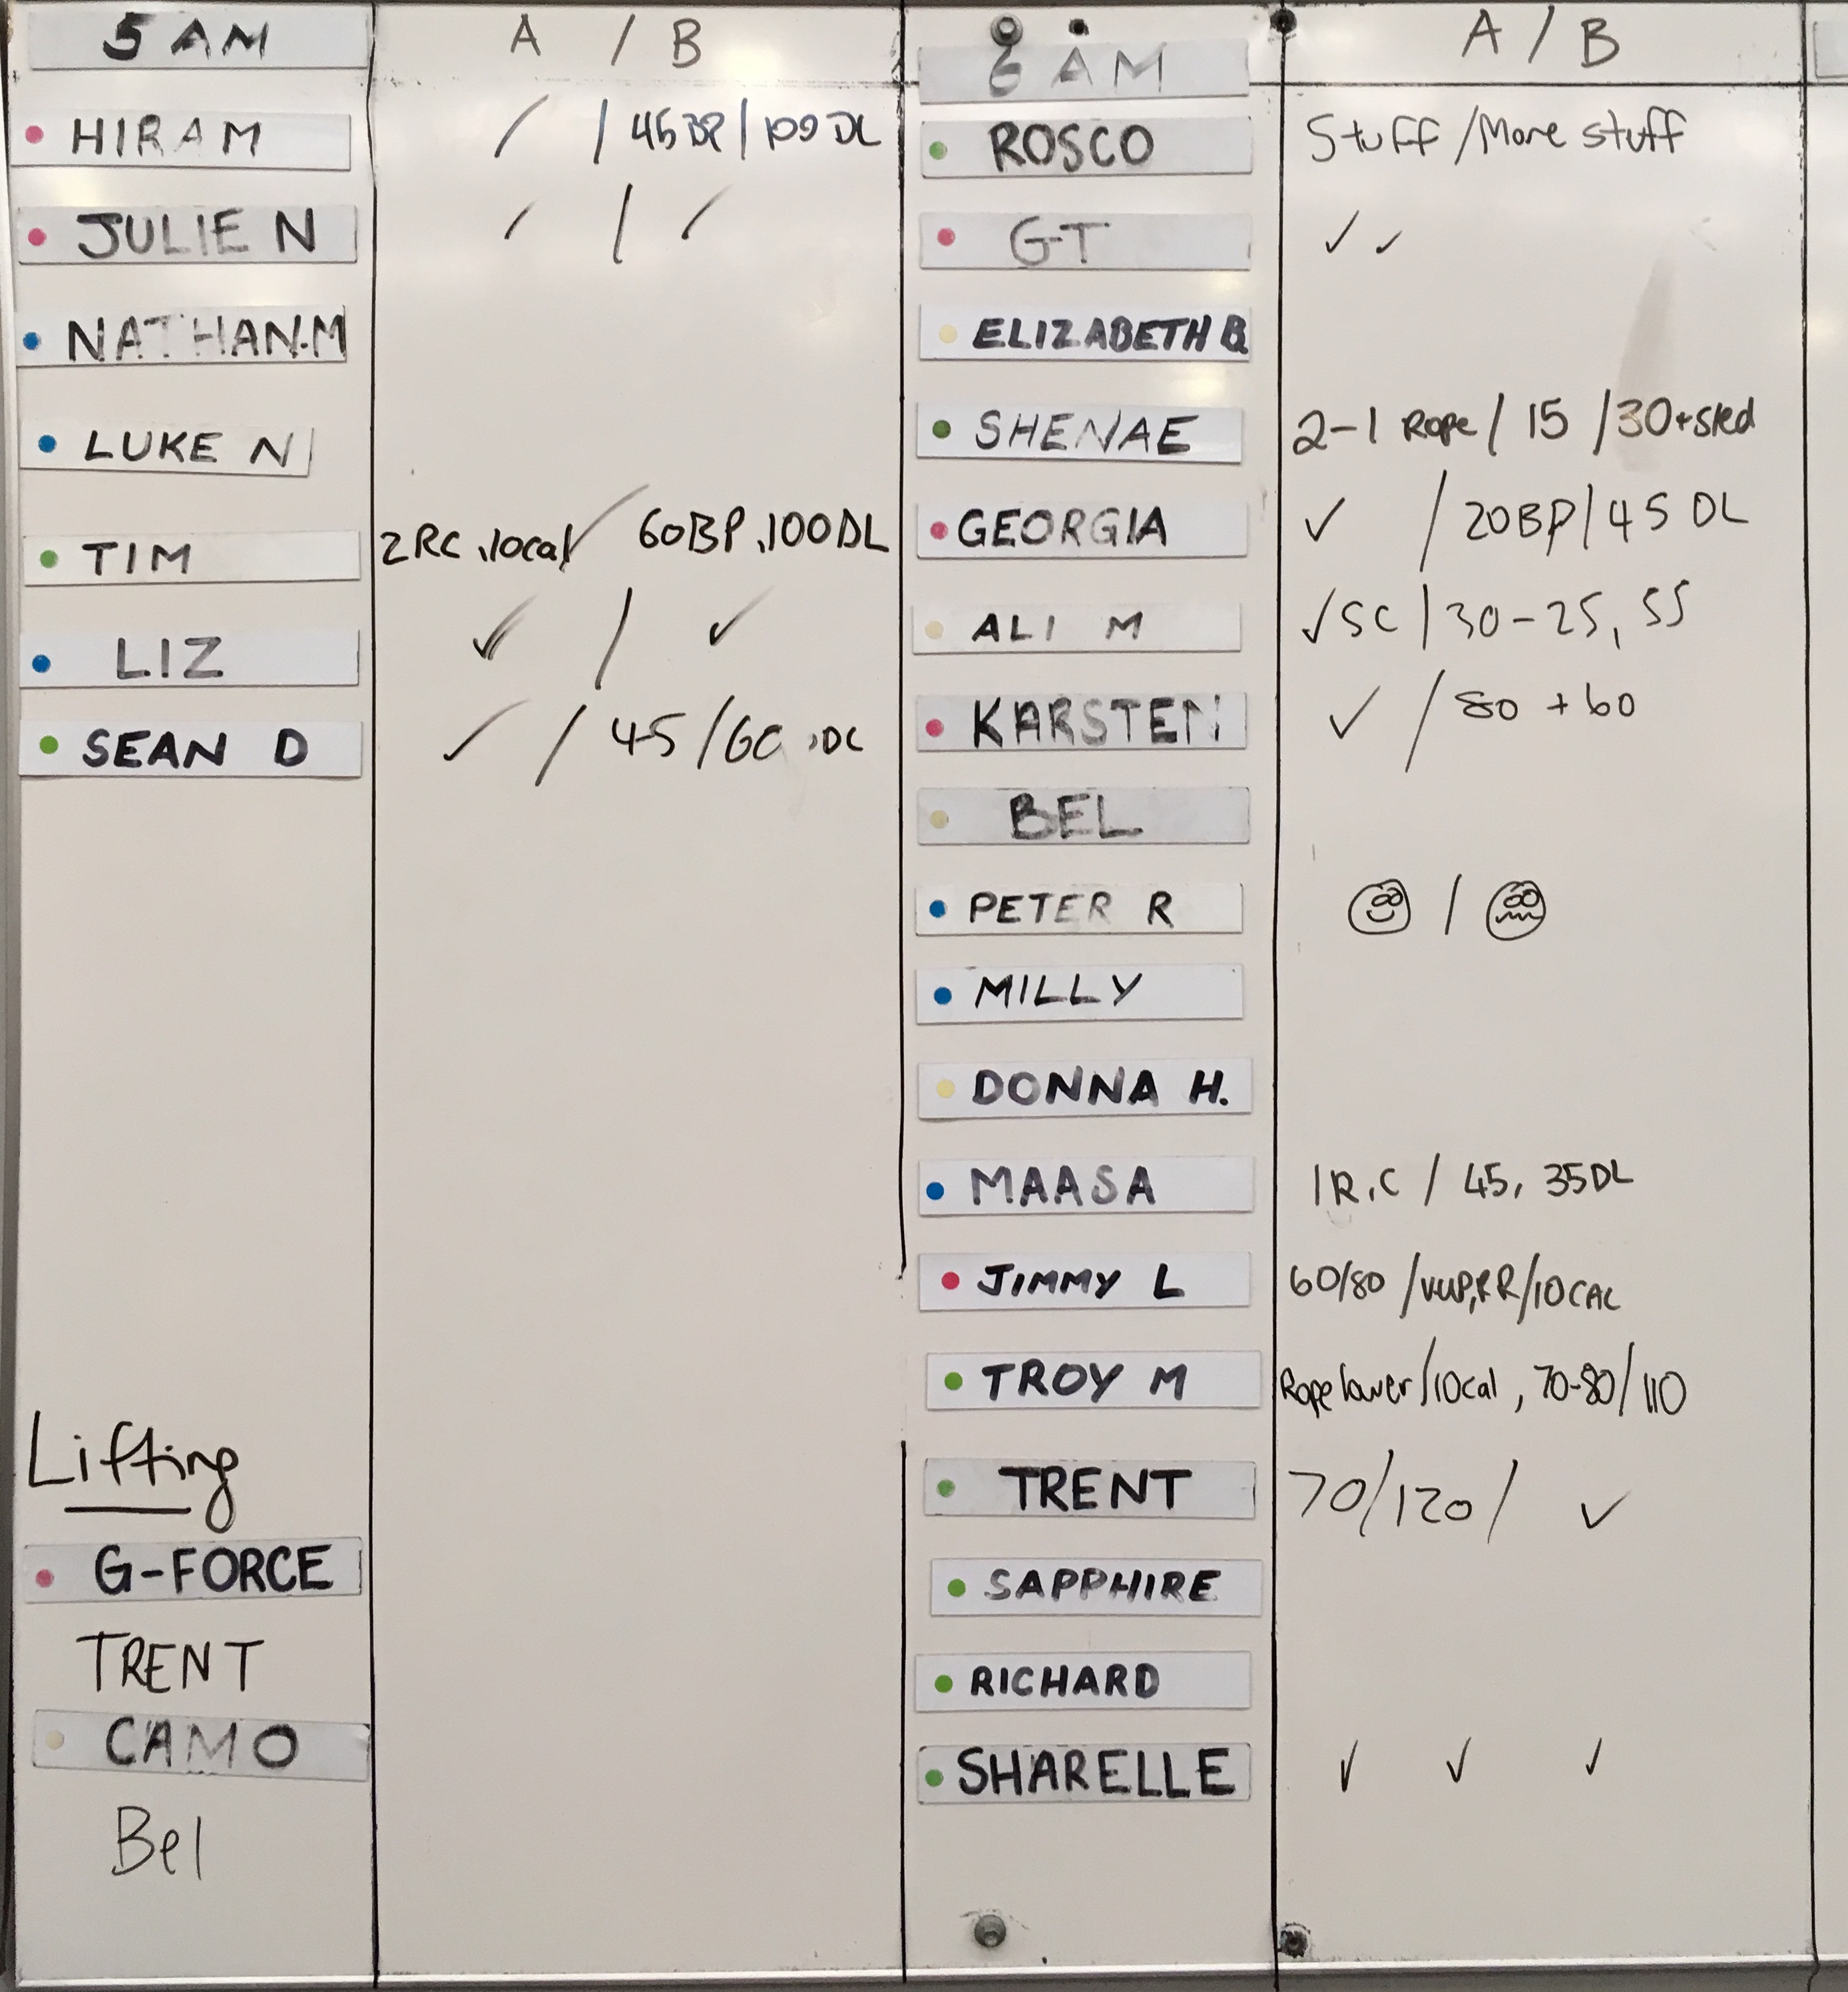 5 AM A / B
HIRAM / / 45BP / 100 DL
JULIE N / / /
NATHAN.M
LUKE N
TIM 2RC, 10cal / 60BP, 100DL
LIZ ✓ / ✓
SEAN D ✓ / 45 /
Lifting
G-FORCE
TRENT
CAMO
Bel
6 AM A / B
ROSCO Stuff / More stuff
GT ✓ ✓
ELIZABETH B
SHENAE 2-1 Rope / 15 / 30+sked
GEORGIA ✓ / 20BP / 45 DL
ALI M ✓SC / 30-25, 55
KARSTEN ✓ / 80 + 60
BEL
PETER R /
MILLY
DONNA H.
MAASA 1R.C / 45, 35DL
JIMMY L 60/80 / /10CAL
TROY M Rope lower / 10cal, 70-80/110
TRENT 70/120/ ✓
SAPPHIRE
RICHARD
SHARELLE ✓ ✓ ✓